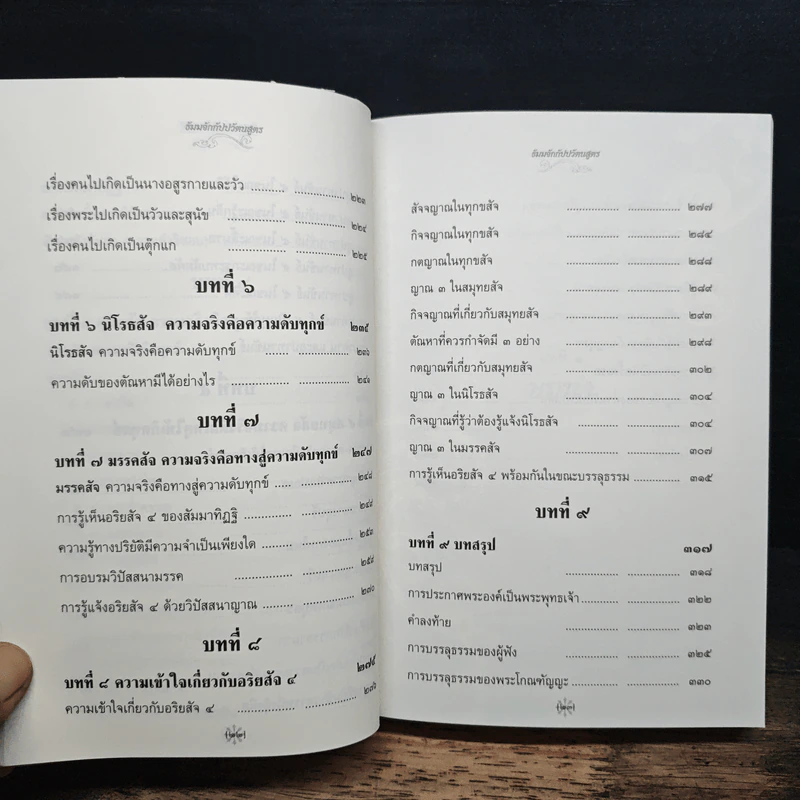 ธัมมจักกัปปวัตนสูตร
เรื่องคนไปเกิดเป็นนางอสูรกายและวัว .......... .................. ๒๒๓
เรื่องพระไปเกิดเป็นวัวและสุนัข .................. .................. ๒๒๔
เรื่องคนไปเกิดเป็นตุ๊กแก .................. .................. ๒๒๕
บทที่ ๖
บทที่ ๖ นิโรธสัจ ความจริงคือความดับทุกข์ ๒๓๕
นิโรธสัจ ความจริงคือความดับทุกข์ .................. .................. ๒๓๖
ความดับของตัณหามีได้อย่างไร .................. .................. ๒๔๑
บทที่ ๗
บทที่ ๗ มรรคสัจ ความจริงคือทางสู่ความดับทุกข์ ๒๔๗
มรรคสัจ ความจริงคือทางสู่ความดับทุกข์ ..... .................. ๒๔๘
การรู้เห็นอริยสัจ ๔ ของสัมมาทิฏฐิ .................. .................. ๒๔๘
ความรู้ทางปริยัติมีความจำเป็นเพียงใด .................. .................. ๒๕๓
การอบรมวิปัสสนามรรค .................. .................. ๒๕๘
การรู้แจ้งอริยสัจ ๔ ด้วยวิปัสสนาญาณ .................. .................. ๒๗๐
บทที่ ๘
บทที่ ๘ ความเข้าใจเกี่ยวกับอริยสัจ ๔ ๒๗๕
ความเข้าใจเกี่ยวกับอริยสัจ ๔ .................. .................. ๒๗๖
{๒๒}
ธัมมจักกัปปวัตนสูตร
สัจจญาณในทุกขสัจ .................. .................. ๒๗๗
กิจจญาณในทุกขสัจ .................. .................. ๒๘๔
กตญาณในทุกขสัจ .................. .................. ๒๘๘
ญาณ ๓ ในสมุทยสัจ .................. .................. ๒๘๙
กิจจญาณที่เกี่ยวกับสมุทยสัจ .................. .................. ๒๙๓
ตัณหาที่ควรกำจัดมี ๓ อย่าง .................. .................. ๒๙๘
กตญาณที่เกี่ยวกับสมุทยสัจ .................. .................. ๓๐๒
ญาณ ๓ ในนิโรธสัจ .................. .................. ๓๐๔
กิจจญาณที่รู้ว่าต้องรู้แจ้งนิโรธสัจ .................. ๓๐๔
ญาณ ๓ ในมรรคสัจ .................. .................. ๓๐๗
การรู้เห็นอริยสัจ ๔ พร้อมกันในขณะบรรลุธรรม .................. ๓๑๕
บทที่ ๙
บทที่ ๙ บทสรุป ๓๑๗
บทสรุป .................. .................. ๓๑๘
การประกาศพระองค์เป็นพระพุทธเจ้า .................. .................. ๓๒๒
คำลงท้าย .................. .................. ๓๒๓
การบรรลุธรรมของผู้ฟัง .................. .................. ๓๒๕
การบรรลุธรรมของพระโกณฑัญญะ .................. .................. ๓๓๐
{๒๓}